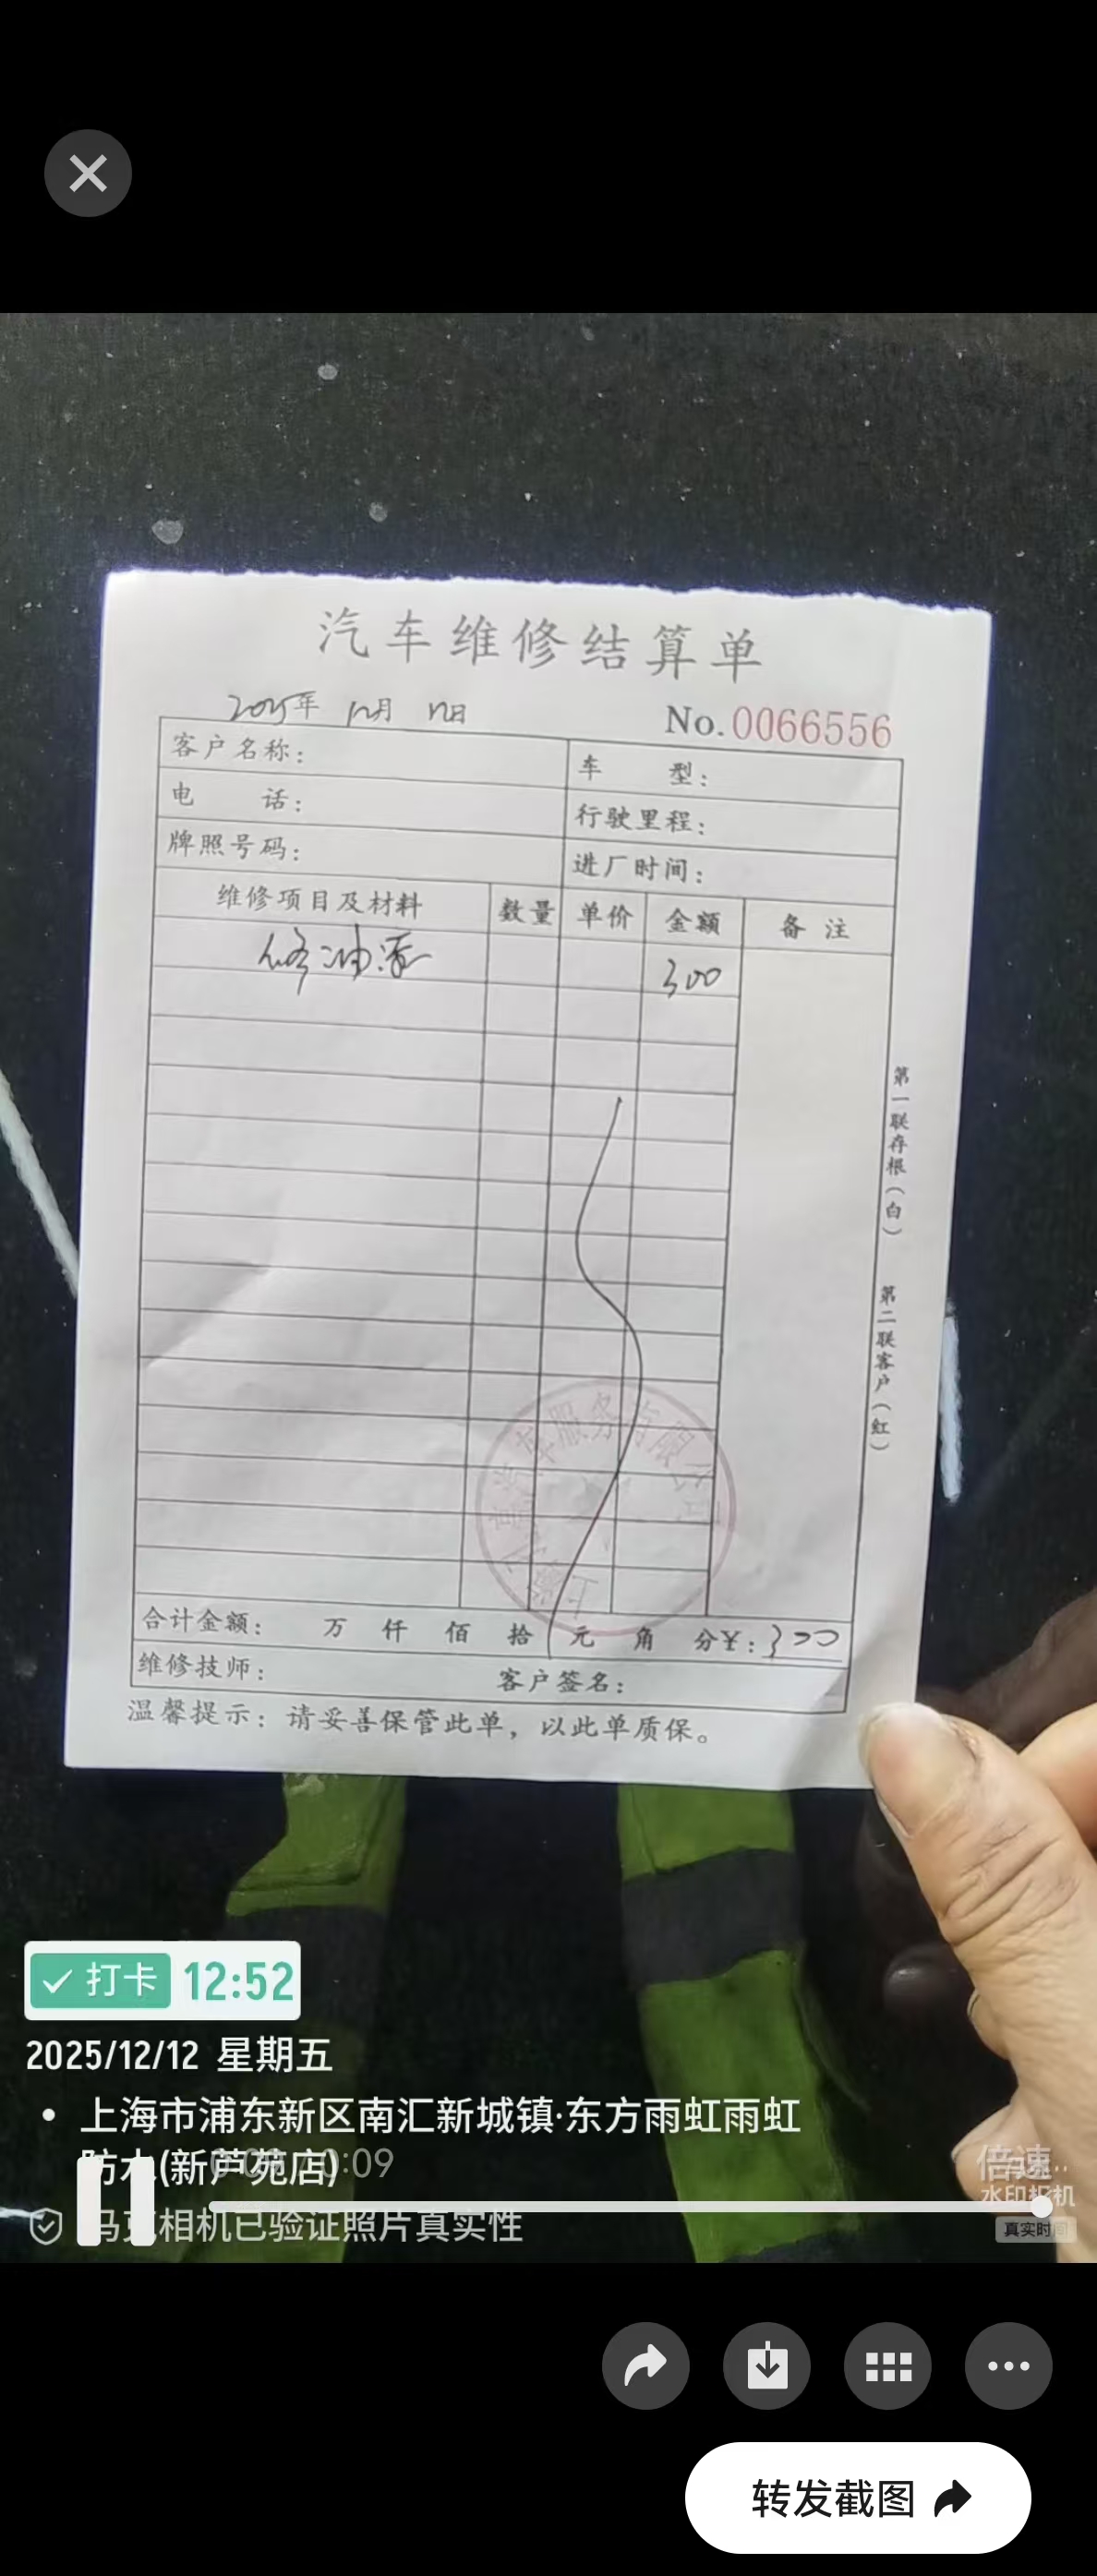 汽车维修结算单
2025年 12月 12日
No.0066556
客户名称：
车 型：
电 话：
行驶里程：
牌照号码：
进厂时间：
维修项目及材料 数量 单价 金额 备注
修油泵 300
第一联存根（白） 第二联客户（红）
汽车服务有限公司
合计金额： 万 仟 佰 拾 元 角 分¥：300
维修技师： 客户签名：
温馨提示：请妥善保管此单，以此单质保。
打卡 12:52
2025/12/12 星期五
上海市浦东新区南汇新城镇·东方雨虹雨虹
防水(新芦苑店)
0:09
倍速
马克相机已验证照片真实性
水印相机
真实时间
转发截图